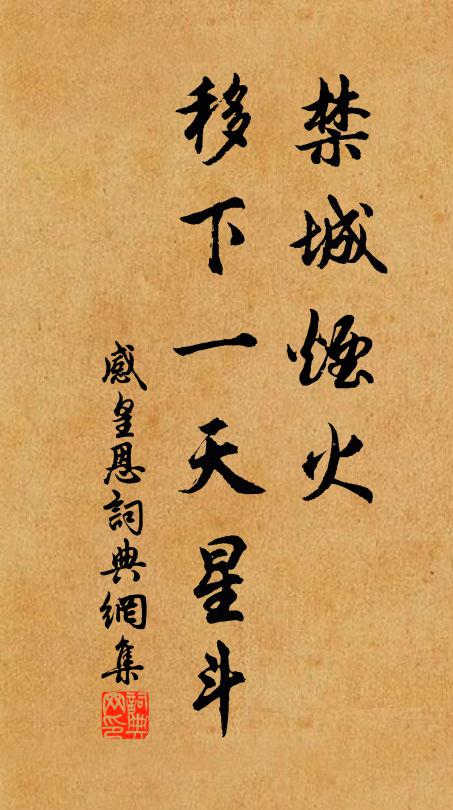 禁城煙火
移下一天星斗
感皇恩詞典網集
詞典
网印